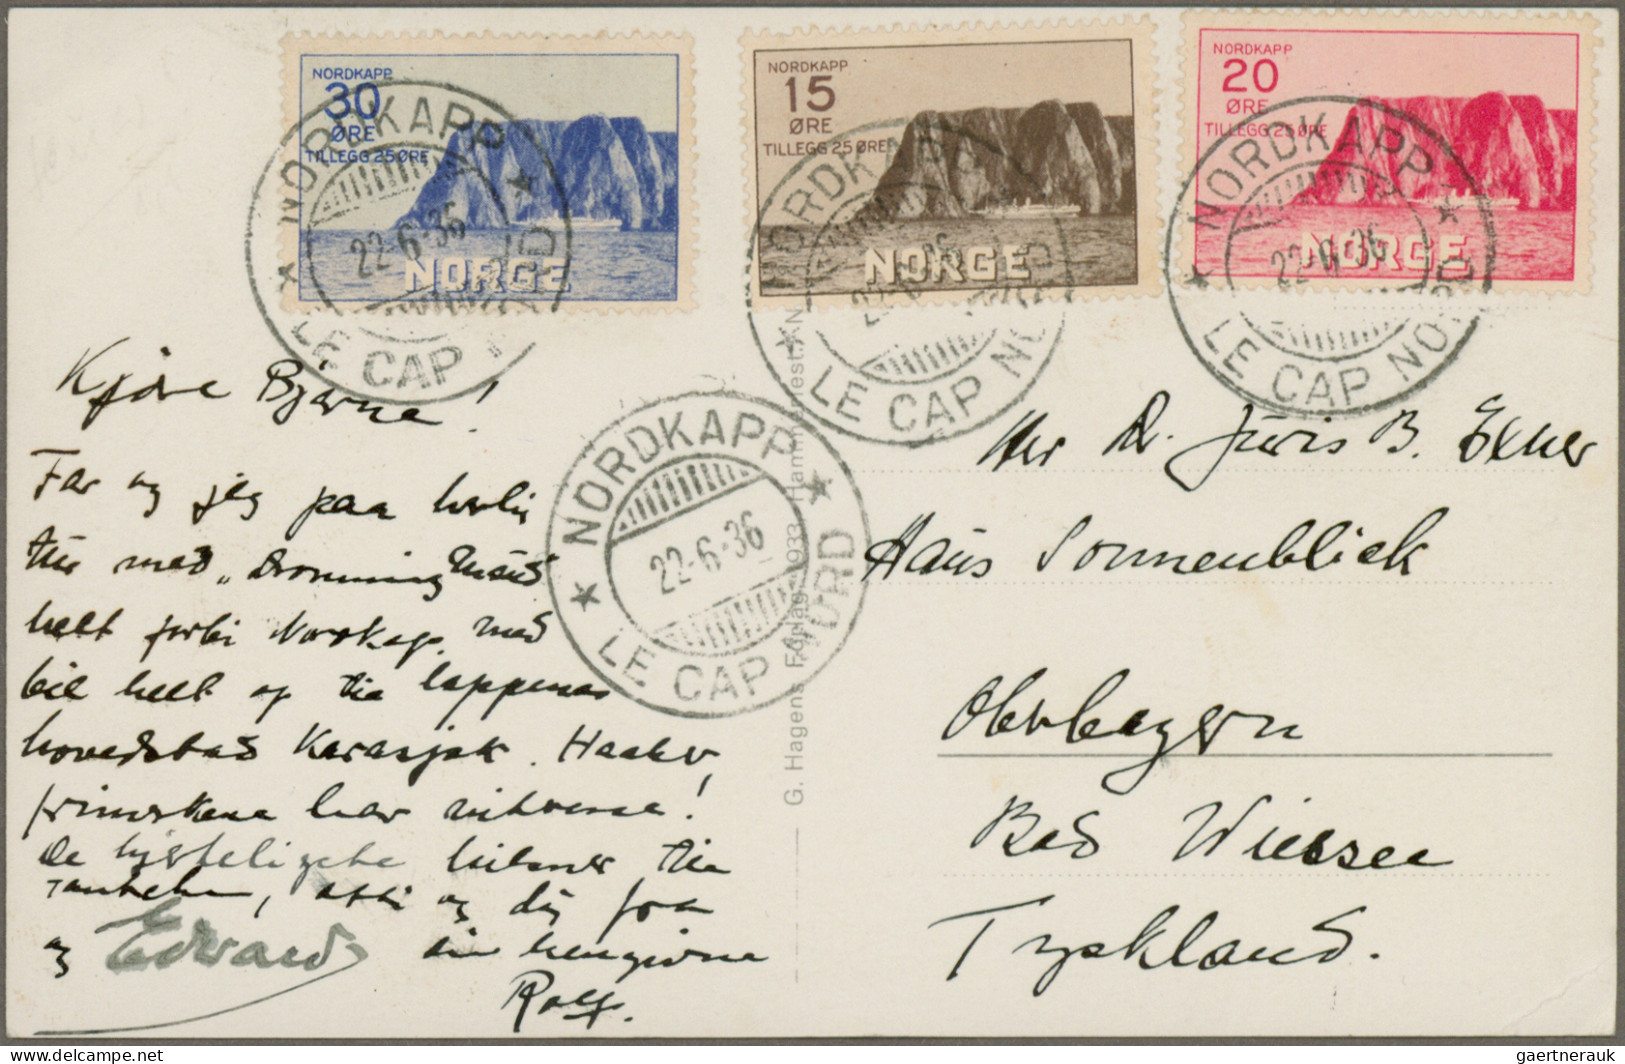 NORDKAPP
30
ØRE
TILLEGG 25 ØRE
NORGE
NORDKAPP
15
ØRE
TILLEGG 25 ØRE
NORGE
NORDKAPP
20
ØRE
TILLEGG 25 ØRE
NORGE
NORDKAPP
22-6-36
LE CAP
NORDKAPP
LE CAP NORD
NORDKAPP
22-6-36
LE CAP NORD
NORDKAPP
22-6-36
LE CAP NORD
Kjære Bjarne!
Far og jeg paa
tur med „Dronning Maud
helt forbi Nordkap. med
bil helt op til lappenes
hovedstad Karasjok. Haaber
De hjerteligste hilsener til
og dig fra
og Edward
Rolf.
G. Hagens Forlag. 1933, Hammerfest.
Dr. Juris B. Exner
Haus Sonnenblick
Oberbayern
Bad Wiessee
Tyskland.
delcampe.net
gaertnerauk